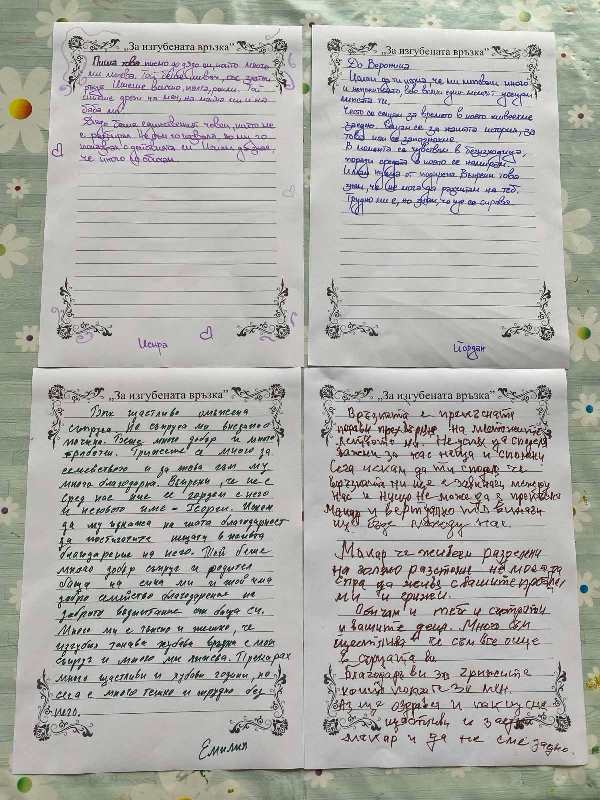 „За изгубената връзка”
Пиша това писмо до дядо си, който много
ми липсва. Той беше
ръце. Имаше всичко
майка ми и на
баба ми.
Дядо беше единственият човек, който ме
е разбирал.
че много го обичам.
Исира
„За изгубената връзка”
До Вероника
Искам да ти кажа, че ми липсваш много
и непрекъснато, във всеки един момент усещам
липсата ти.
Често се сещам за времето в което живеехме
заедно. Сещам се за нашата история, за
това как се запознахме.
В момента се чувствам в безизходица,
поради средата в която се намирам.
Имам нужда от подкрепа. Въпреки това
знам, че не мога да разчитам на теб.
Трудно ми е, но знам, че ще се справя.
Йордан
„За изгубената връзка”
Бях щастливо омъжена
съпруга. Но съпруга ми внезапно
почина. Беше много добър и много
работен. Грижеше се много за
семейството и за това съм му
много благодарна. Въпреки, че не е
сред нас ние се гордеем с него
и неговото име - Георги. Искам
да му изкажа на моята благодарност
за постигнатите неща в живота
благодарение на него. Той беше
много добър съпруг и родител
баща на сина ми и той има
добро семейство благодарение на
доброто възпитание от баща си.
Много ми е тъжно и тежко, че
изгубих такава хубава връзка с моя
съпруг и много ми липсва. Прекарах
много щастливи и хубави години, но
сега е много тежко и трудно без
него.
Емилия
„За изгубената връзка”
Връзката е прекъсната
поради
Не успях да споделя
важни за нас неща и спомени
Сега искам да ти споделя че
връзката ни ще е завинаги между
нас и нищо не може да я прекъсне
Макар и виртуално тя винаги
ще бъде между нас.
Макар че живеем разделени
на голямо разстояние не мога да
спра да живея с вашите проблеми
и грижи.
Обичам и тебе и съпругата ти
и вашите деца. Много съм
щастлива че съм все още
в сърцата ви
Благодаря ви за грижите
които полагате за мен.
Аз ще оздравея и пак ще сме
щастливи и заедно
макар и да не сме заедно.